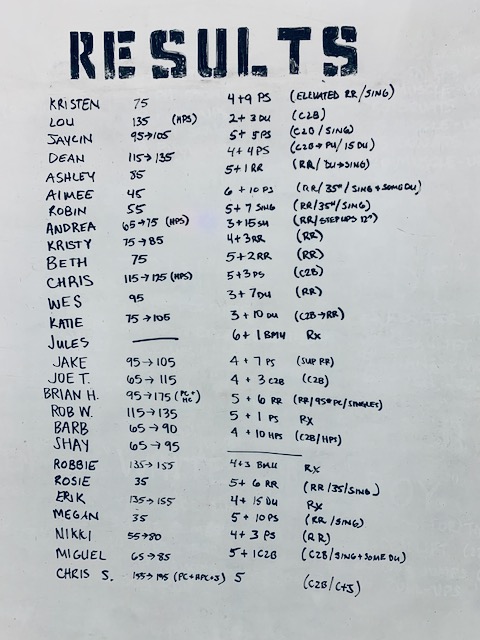 RESULTS
KRISTEN 75 4+9 PS (ELEVATED RR/SING)
LOU 135 (HPS) 2+3 DU (C2B)
JAYLIN 95→105 5+5 PS (C2B/SING)
DEAN 115→135 4+4 PS (C2B→PU/15 DU)
ASHLEY 85 5+1 RR (RR/DU→SING)
AIMEE 45 6+10 PS (RR/35#/SING+SOME DU)
ROBIN 55 5+7 SING (RR/35#/SING)
ANDREA 65→75 (HPS) 3+15 SU (RR/STEP UPS 12")
KRISTY 75→85 4+3 RR (RR)
BETH 75 5+2 RR (RR)
CHRIS 115→125 (HPS) 5+3 PS (C2B)
WES 95 3+7 DU (RR)
KATIE 75→105 3+10 DU (C2B→RR)
JULES — 6+1 BMU Rx
JAKE 95→105 4+7 PS (SUP RR)
JOE T. 65→115 4+3 C2B (C2B)
BRIAN H. 95→175 (PC+HC) 5+6 RR (RR/95# PC/SINGLES)
ROB W. 115→135 5+1 PS Rx
BARB 65→90 4+10 HPS (C2B/HPS)
SHAY 65→95 —
ROBBIE 135→155 4+3 BMU Rx
ROSIE 35 5+6 RR (RR/35/SING)
ERIK 135→155 4+15 DU Rx
MEGAN 35 5+10 PS (RR/SING)
NIKKI 55→80 4+3 PS (RR)
MIGUEL 65→85 5+1 C2B (C2B/SING+SOME DU)
CHRIS S. 155→195 (PC+HPC+J) 5 (C2B/C+J)